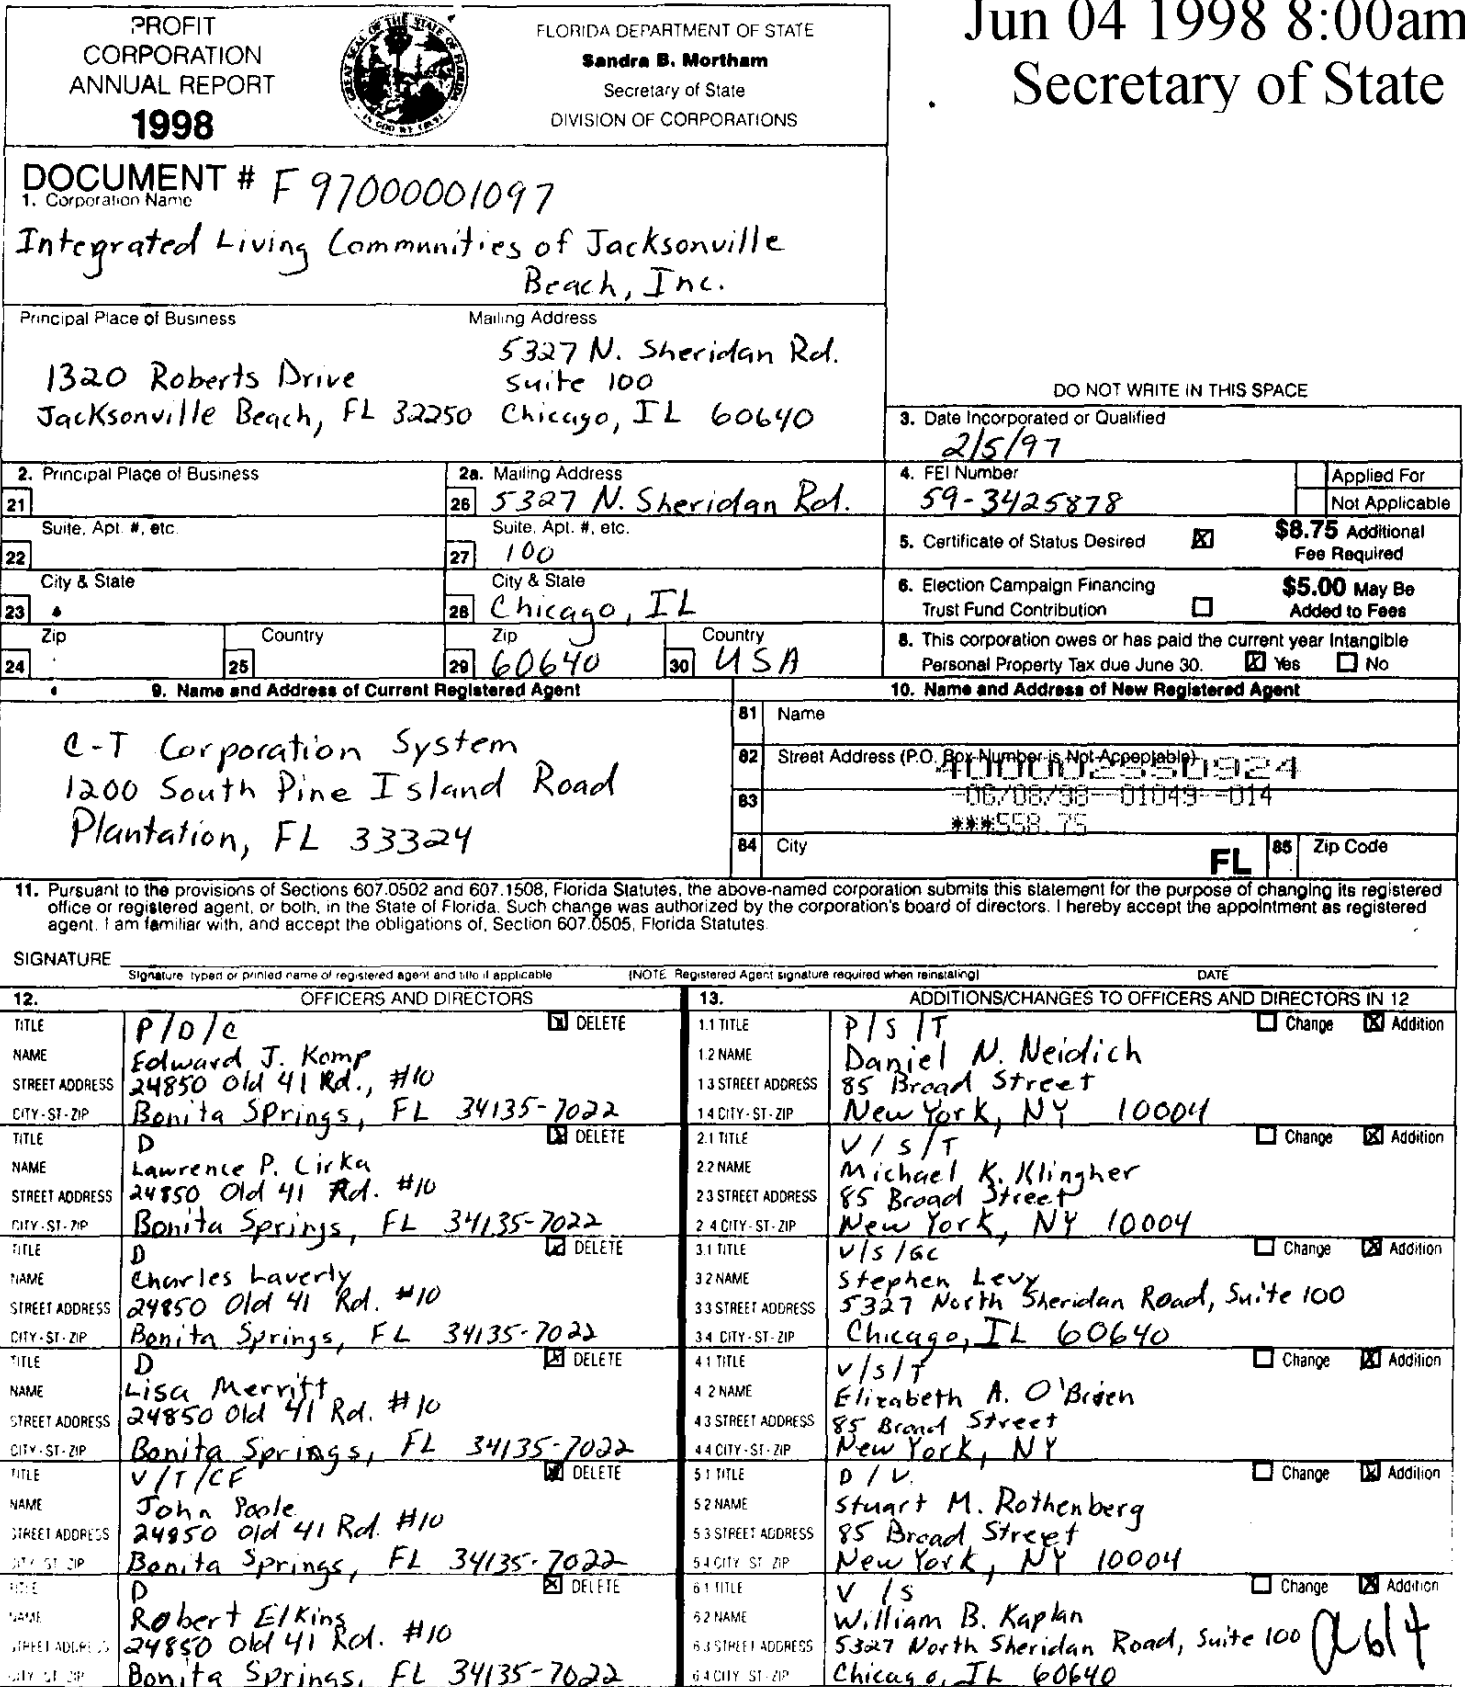 PROFIT
CORPORATION
ANNUAL REPORT
1998
FLORIDA DEPARTMENT OF STATE
Sandra B. Mortham
Secretary of State
DIVISION OF CORPORATIONS
Jun 04 1998 8:00am
Secretary of State
DOCUMENT # F97000001097
1. Corporation Name
Integrated Living Communities of Jacksonville
Beach, Inc.
Principal Place of Business
1320 Roberts Drive
Jacksonville Beach, FL 32250
Mailing Address
5327 N. Sheridan Rd.
Suite 100
Chicago, IL 60640
DO NOT WRITE IN THIS SPACE
3. Date Incorporated or Qualified
2/5/97
2. Principal Place of Business
21
2a. Mailing Address
26 5327 N. Sheridan Rd.
4. FEI Number
59-3425878
Applied For
Not Applicable
Suite, Apt. #, etc.
22
Suite, Apt. #, etc.
27 100
5. Certificate of Status Desired X $8.75 Additional
Fee Required
City & State
23
City & State
28 Chicago, IL
6. Election Campaign Financing
Trust Fund Contribution
$5.00 May Be
Added to Fees
Zip
24
Country
25
Zip
29 60640
Country
30 USA
8. This corporation owes or has paid the current year Intangible
Personal Property Tax due June 30. X Yes No
9. Name and Address of Current Registered Agent
C-T Corporation System
1200 South Pine Island Road
Plantation, FL 33324
10. Name and Address of New Registered Agent
81 Name
82 Street Address (P.O. Box Number is Not Acceptable)
-06/08/98--01049--014
83
***558.75
84 City
FL
85 Zip Code
11. Pursuant to the provisions of Sections 607.0502 and 607.1508, Florida Statutes, the above-named corporation submits this statement for the purpose of changing its registered
office or registered agent, or both, in the State of Florida. Such change was authorized by the corporation's board of directors. I hereby accept the appointment as registered
agent. I am familiar with, and accept the obligations of, Section 607.0505, Florida Statutes.
SIGNATURE
Signature typed or printed name of registered agent and title if applicable (NOTE Registered Agent signature required when reinstating) DATE
12. OFFICERS AND DIRECTORS
TITLE P/D/C X DELETE
NAME Edward J. Komp
STREET ADDRESS 24850 Old 41 Rd., #10
CITY-ST-ZIP Bonita Springs, FL 34135-7022
TITLE D X DELETE
NAME Lawrence P. Cirka
STREET ADDRESS 24850 Old 41 Rd. #10
CITY-ST-ZIP Bonita Springs, FL 34135-7022
TITLE D X DELETE
NAME Charles Laverly
STREET ADDRESS 24850 Old 41 Rd. #10
CITY-ST-ZIP Bonita Springs, FL 34135-7022
TITLE D X DELETE
NAME Lisa Merritt
STREET ADDRESS 24850 Old 41 Rd. #10
CITY-ST-ZIP Bonita Springs, FL 34135-7022
TITLE V/T/CF X DELETE
NAME John Poole
STREET ADDRESS 24850 Old 41 Rd. #10
CITY ST ZIP Bonita Springs, FL 34135-7022
TITLE D X DELETE
NAME Robert Elkins
STREET ADDRESS 24850 Old 41 Rd. #10
CITY ST ZIP Bonita Springs, FL 34135-7022
13. ADDITIONS/CHANGES TO OFFICERS AND DIRECTORS IN 12
1.1 TITLE P/S/T Change X Addition
1.2 NAME Daniel N. Neidich
1.3 STREET ADDRESS 85 Broad Street
1.4 CITY-ST-ZIP New York, NY 10004
2.1 TITLE V/S/T Change X Addition
2.2 NAME Michael K. Klingher
2.3 STREET ADDRESS 85 Broad Street
2.4 CITY-ST-ZIP New York, NY 10004
3.1 TITLE V/S/GC Change X Addition
3.2 NAME Stephen Levy
3.3 STREET ADDRESS 5327 North Sheridan Road, Suite 100
3.4 CITY-ST-ZIP Chicago, IL 60640
4.1 TITLE V/S/T Change X Addition
4.2 NAME Elizabeth A. O'Brien
4.3 STREET ADDRESS 85 Broad Street
4.4 CITY-ST-ZIP New York, NY
5.1 TITLE D/V. Change X Addition
5.2 NAME Stuart M. Rothenberg
5.3 STREET ADDRESS 85 Broad Street
5.4 CITY ST ZIP New York, NY 10004
6.1 TITLE V/S Change X Addition
6.2 NAME William B. Kaplan
6.3 STREET ADDRESS 5327 North Sheridan Road, Suite 100
6.4 CITY ST-ZIP Chicago, IL 60640